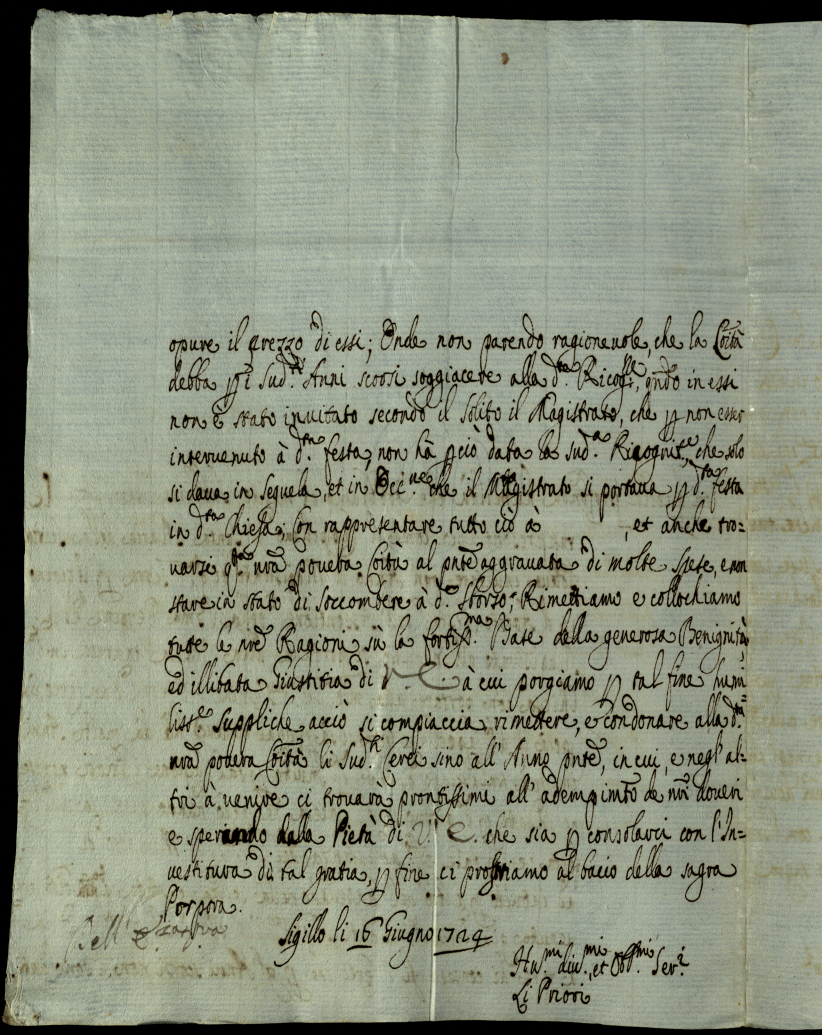 opure il prezzo di essi; Onde non parendo ragioneuole, che la Coītà
debba p i Sud.ti Anni scorsi soggiacere alla d.ta Ricog.ne, qndo in essi
non è stato inuitato secondo il solito il Magistrato, che p non esser
interuenuto à d.ta festa, non hà pciò data la sud.a Ricognit.e, che solo
si daua in seguela, et in Occ.ne che il Magistrato si portaua p d.ta festa
in d.ta Chiesa; Con rappresentare tutto ciò à , et anche tro=
uarsi q.ta nrā pouera Coītà al pnte aggrauata di molte spese, e non
stare in stato di soccombere à d.o sborso; Rimettiamo e collochiamo
tutte le nrē Ragioni sù la fortiss.ma Base della generosa Benignità,
ed illibata Giustitia di V. E. à cui porgiamo p tal fine humi=
liss.e suppliche acciò si compiaccia rimettere, e condonare alla d.ta
nrā pouera Coītà li Sud.ti Cerei sino all' Anno pnte, in cui, e negl' al=
tri à uenire ci trouarà prontissimi all' adempimto de nrī doueri
e sperando dalla Pietà di V. E. che sia p consolarci con l' In=
uestitura di tal gratia, p fine ci prostriamo al bacio della sagra
Porpora.
Dell' E. V.
Sigillo li 16 Giugno 1724
Hu.mi diu.mi, et Obb.mi Ser.i
Li Priori